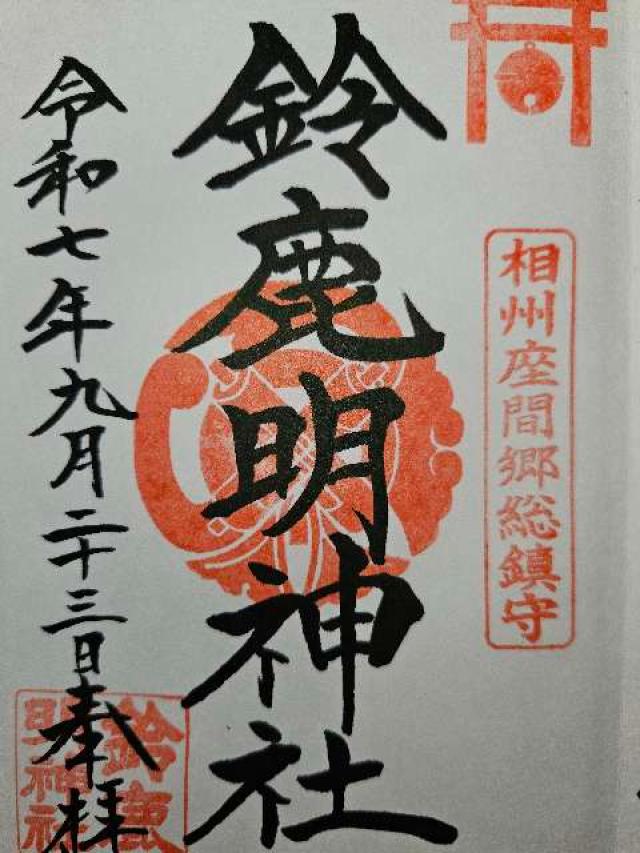 相州座間郷総鎮守
鈴鹿明神社
令和七年九月二十三日奉拝
鈴鹿
明神社